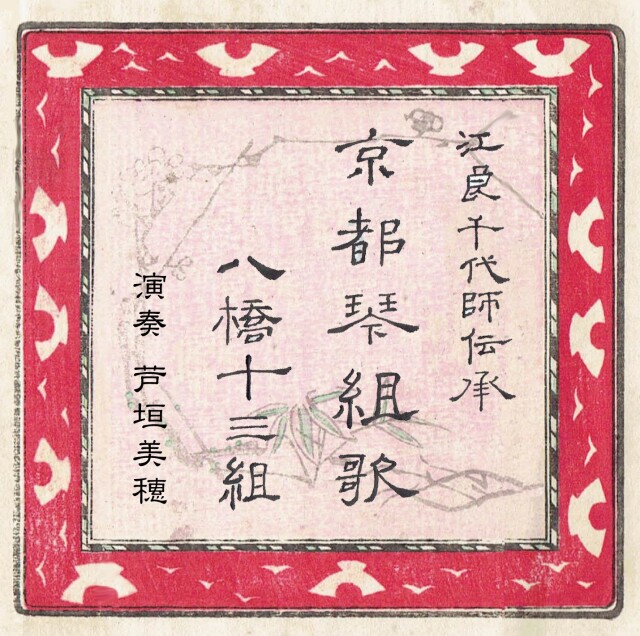 江良千代師伝承
京都琴組歌
八橋十三組
演奏 芦垣美穂